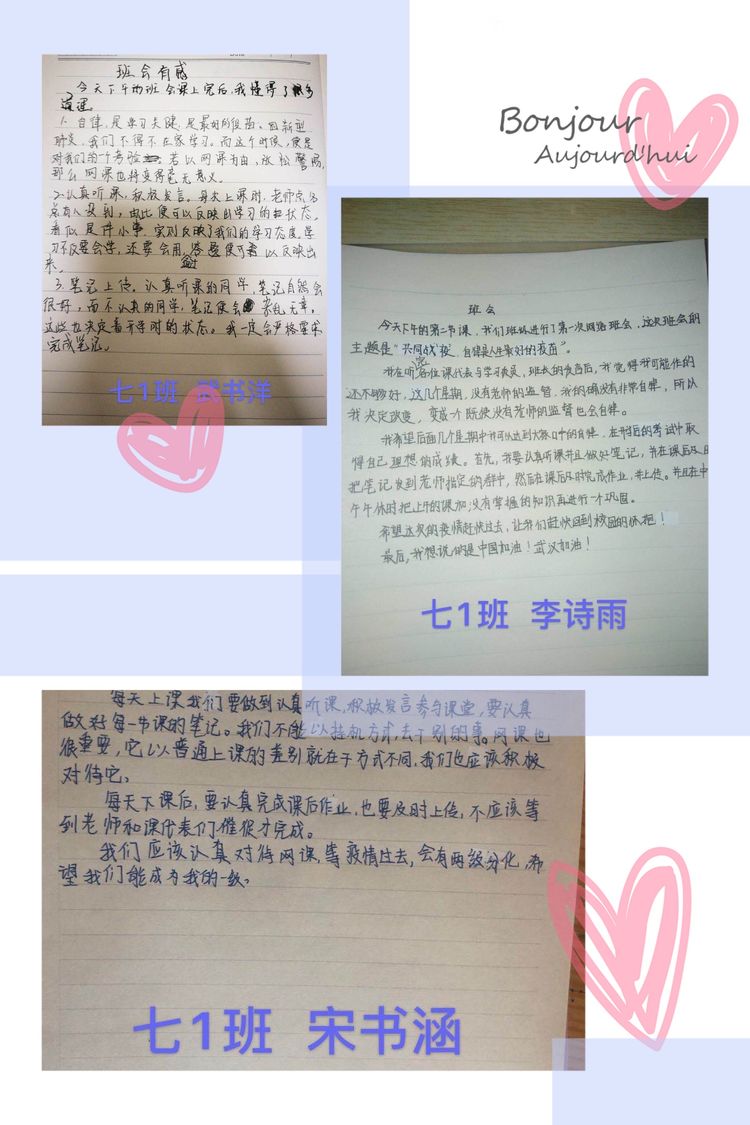 班会有感
今天下午的班会课上完后,我懂得了很多
道理
1.自律,是学习关键,是最好的疫苗。因新型
肺炎,我们不得不在家学习。而这个时候,便是
对我们的一个考验。若以网课为由,放松警惕,
那么网课也将变得毫无意义。
2.认真听课,积极发言。每次上课时,老师点名
总有人没到,由此便可以反映出学习的状态。
看似是件小事,实则反映了我们的学习态度。学
习不仅要会学,还要会用,答题便可以反映出
来。
3.笔记上传。认真听课的同学,笔记自然会
很好,而不认真的同学,笔记便会杂乱无章。
这些也决定着开学时的状态。我一定会严格要求
完成笔记。
七1班 武书洋
Bonjour
Aujourd'hui
班会
今天下午的第二节课,我们班级进行了第一次网络班会,这次班会的
主题是“共同战“疫”,自律是人生最好的疫苗”。
我在听完各位课代表与学习委员,班长的发言后,我觉得我可能作的
还不够好,这几个星期,没有老师的监督,我的确没有非常自律,所以
我决定改变,变成一个既使没有老师的监督也会自律。
我希望后面几个星期中我可以达到大家口中的自律,在开学后的考试中取
得自己理想的成绩。首先,我要认真听课并且做好笔记,并在课后及时
把笔记发到老师指定的群中,然后在课后及时完成作业,并上传。并且在中
午午休时把上午的课加没有掌握的知识再进行一个巩固。
希望这次的疫情赶快过去,让我们赶快回到校园的怀抱!
最后,我想说的是中国加油!武汉加油!
七1班 李诗雨
每天上课我们要做到认真听课,积极发言参与课堂,要认真
做好每一节课的笔记。我们不能以挂机方式,去干别的事。网课也
很重要,它以普通上课的差别就在于方式不同,我们也应该积极
对待它。
每天下课后,要认真完成课后作业,也要及时上传,不应该等
到老师和课代表们催很才完成。
我们应该认真对待网课,等疫情过去,会有两级分化,希
望我们能成为我的一级。
七1班 宋书涵